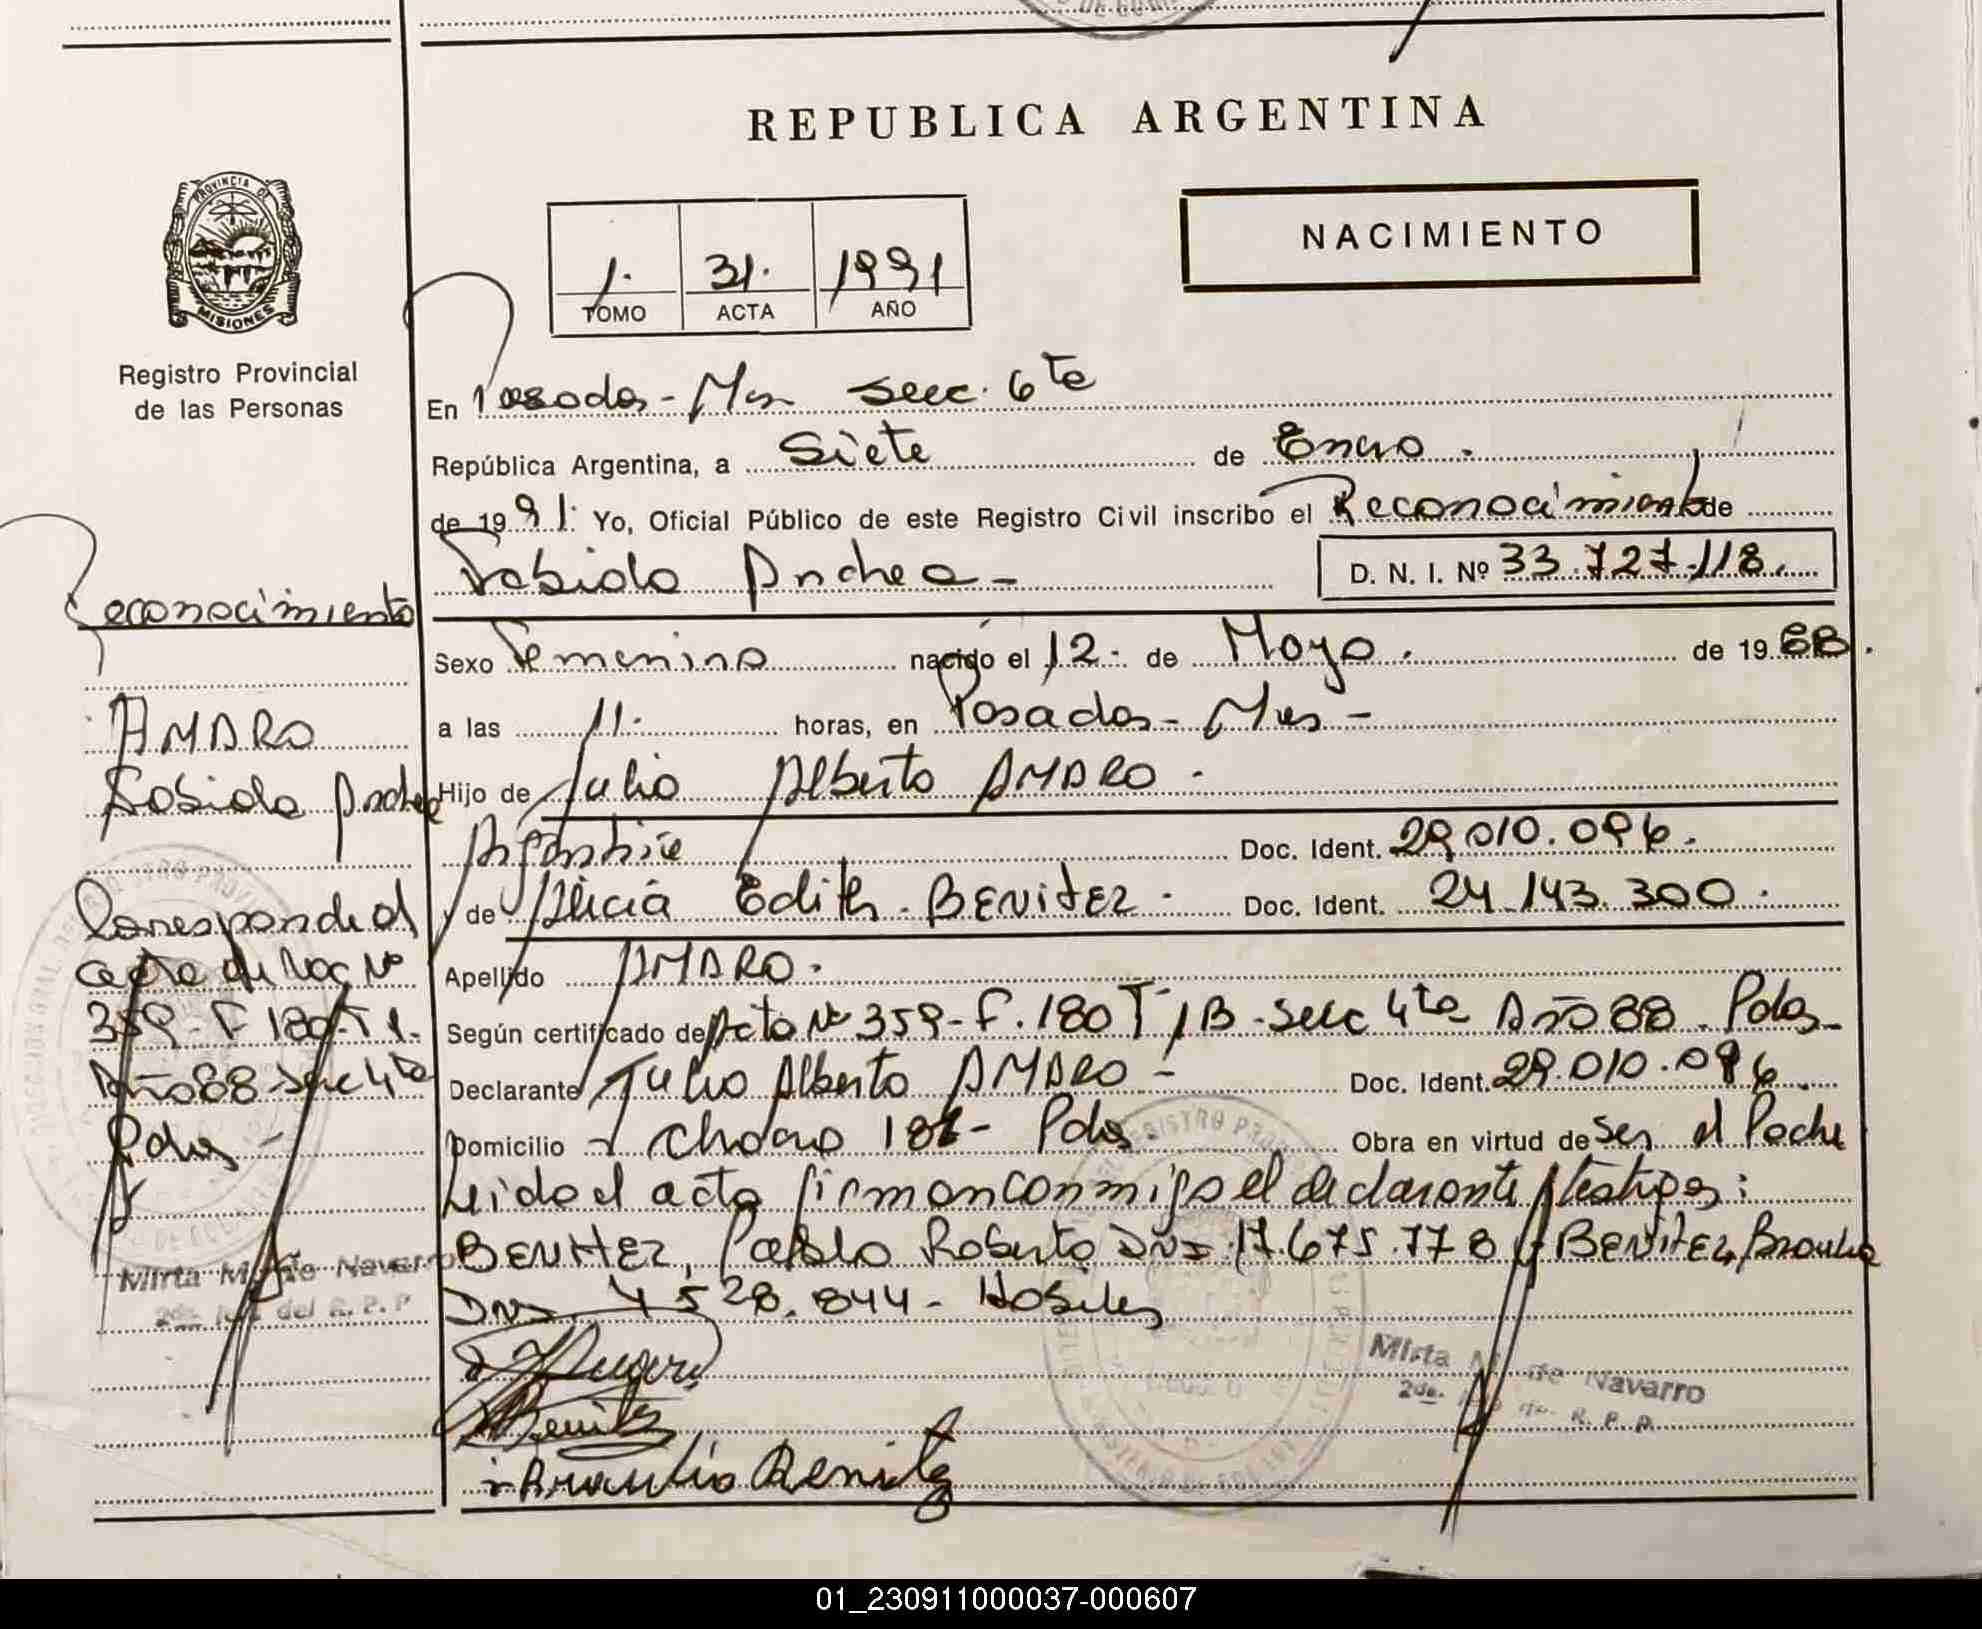 REPUBLICA ARGENTINA
NACIMIENTO
PROVINCIA DE
MISIONES
Registro Provincial
de las Personas
1. 31. 1991
TOMO ACTA AÑO
En Posadas - Mns secc. 6te
República Argentina, a Siete de Enero.
de 1991. Yo, Oficial Público de este Registro Civil inscribo el Reconocimiento de
Fabiola Andrea - D. N. I. Nº 33.727.118.
Sexo Femenino nacido el 12. de Mayo. de 1988.
a las 11. horas, en Posadas - Mns -
Hijo de Julio Alberto AMARO.
Argentino Doc. Ident. 29.010.096.
y de Alicia Edith - BENITEZ. Doc. Ident. 24.143.300.
Apellido AMARO.
Según certificado de Acta Nº 359 - F. 180 T 1B - secc 4ta Año 88. Pdas -
Declarante Julio Alberto AMARO - Doc. Ident. 29.010.096.
Domicilio - Chaco 186 - Pdas. Obra en virtud de Ser el Padre
Leida el acta firman conmigo el declarante y testigos:
BENITEZ, Pablo Roberto DNI. 17.675.778 y BENITEZ, Braulio
DNI 7.528.844 - Habiles
Benitez
Braulio Benitez
Reconocimiento
AMARO
Fabiola Andrea
Corresponde al
acta de Nac Nº
359 - F 180 - T 1.
Año 88 - secc 4ta
Pdas -
Mirta M. de Navarro
2da. del R. P. P
Mirta M. de Navarro
2da. R. P. P.
01_230911000037-000607